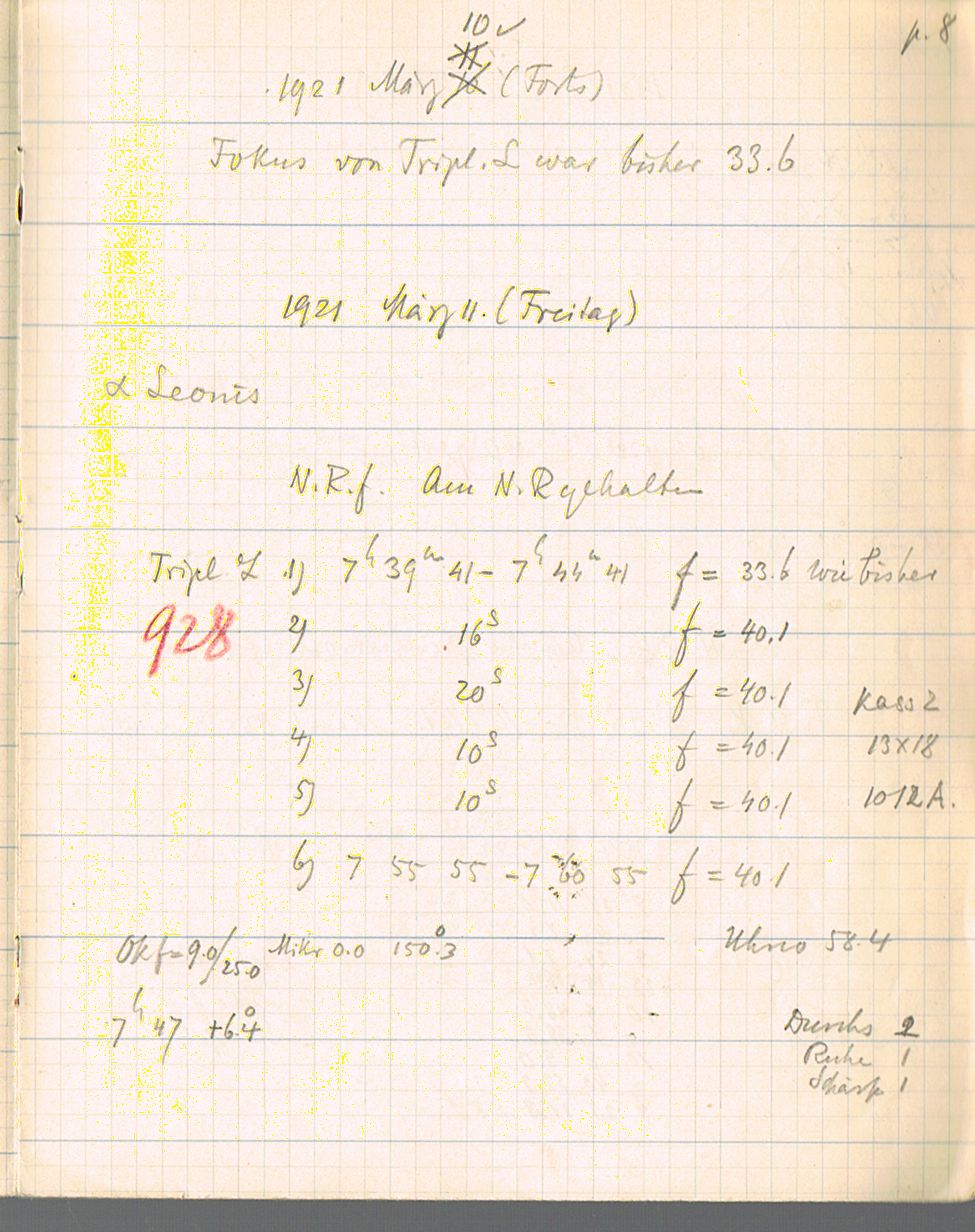 p. 8
10 ✓
11
1921 März 10 (Forts)
Fokus von Tripl. L war bisher 33.6
1921 März 11. (Freitag)
α Leonis
N.R.f. Am N.R gehalten
Tripl. L 1) 7h 39m 41 – 7h 44m 41 f = 33.6 wie bisher
928 2) 16s f = 40.1
3) 20s f = 40.1 Kass 2
4) 10s f = 40.1 13×18
5) 10s f = 40.1 1012 A.
6) 7 55 55 – 7 60 55 f = 40.1
Ok f = 9.0/25.0 Mikr 0.0 150°.3 Uhr 58.4
7h 47 +6°.4
Durchs 2
Ruhe 1
Schärfe 1